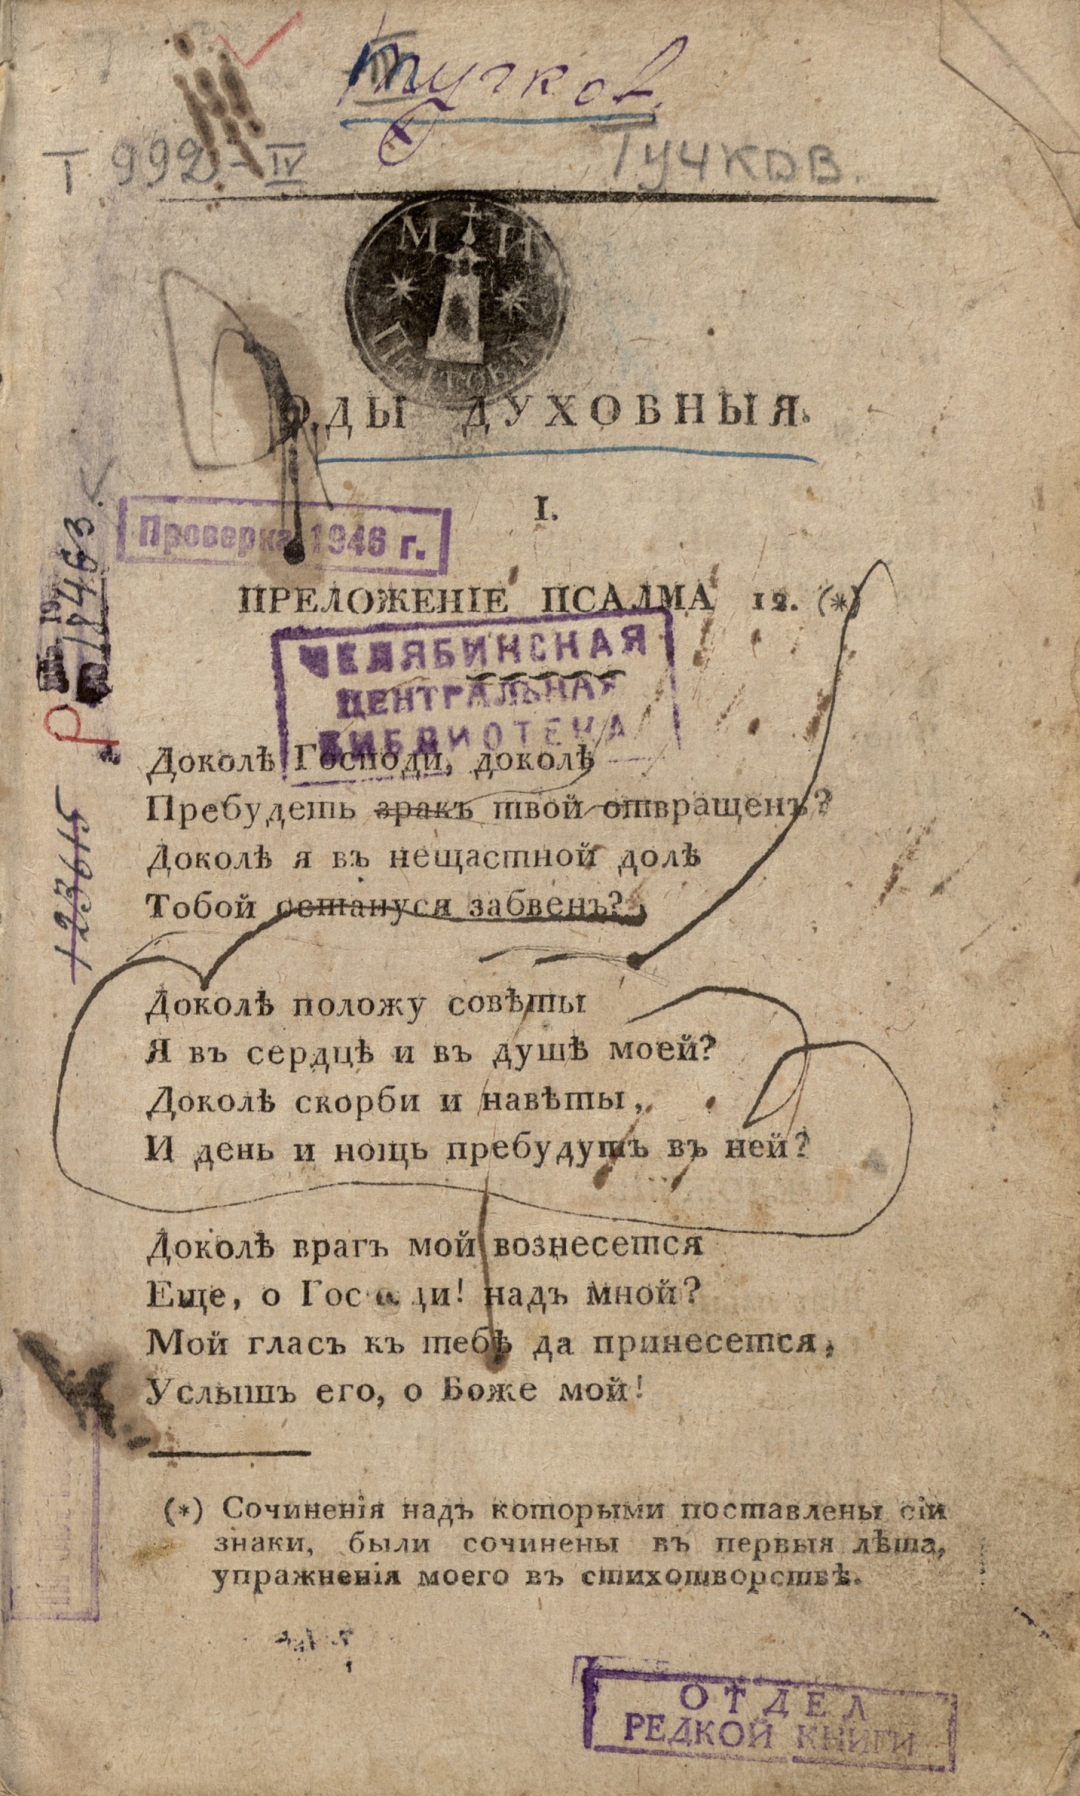 Тучков.
Т 992 - IV
Тучков.
М И
ОДЫ ДУХОВНЫЯ.
I.
Проверка 1946 г.
ПРЕЛОЖЕНІЕ ПСАЛМА 12. (*)
ЧЕЛЯБИНСКАЯ
ЦЕНТРАЛЬНАЯ
БИБЛИОТЕКА
Доколѣ Господи, доколѣ
Пребудетъ зракъ твой отвращенъ?
Доколѣ я въ нещастной долѣ
Тобой остануся забвенъ?
Доколѣ положу совѣты
Я въ сердцѣ и въ душѣ моей?
Доколѣ скорби и навѣты,
И день и нощь пребудутъ въ ней?
Доколѣ врагъ мой вознесется
Еще, о Господи! надъ мной?
Мой гласъ къ тебѣ да принесется,
Услышъ его, о Боже мой!
(*) Сочиненія надъ которыми поставлены сіи
знаки, были сочинены въ первыя лѣта,
упражненія моего въ стихотворствѣ.
18463
123615
ОТДЕЛ
РЕДКОЙ КНИГИ